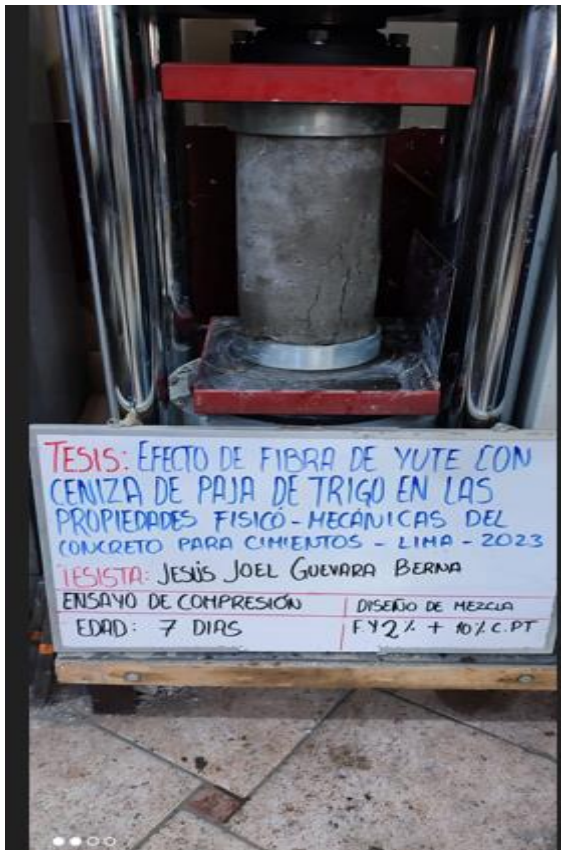 TESIS: EFECTO DE FIBRA DE YUTE CON
CENIZA DE PAJA DE TRIGO EN LAS
PROPIEDADES FISICO-MECÁNICAS DEL
CONCRETO PARA CIMIENTOS - LIMA - 2023
TESISTA: JESÚS JOEL GUEVARA BERNA
ENSAYO DE COMPRESIÓN
DISEÑO DE MEZCLA
EDAD: 7 DIAS
F.Y 2% + 10% C.PT